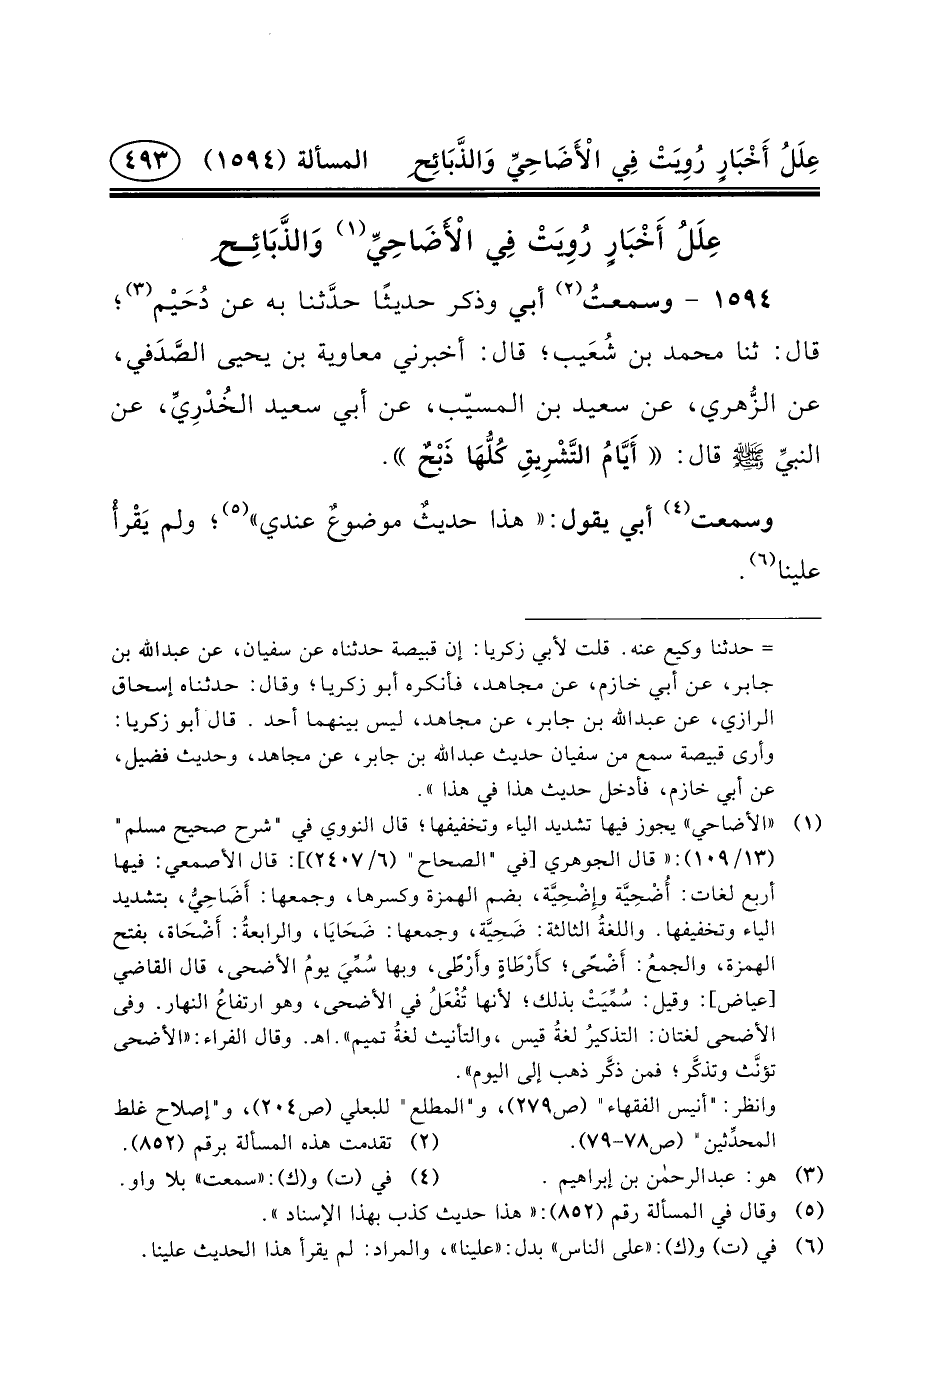 عِلَلُ أَخْبَارٍ رُوِيَتْ فِي الْأَضَاحِيِّ وَالذَّبَائِحِ المسألة (١٥٩٤) ٤٩٣
عِلَلُ أَخْبَارٍ رُوِيَتْ فِي الْأَضَاحِيِّ(١) وَالذَّبَائِحِ
١٥٩٤ - وسمعتُ(٢) أبي وذكر حديثًا حدَّثنا به عن دُحَيْم(٣)؛
قال: ثنا محمد بن شُعَيب؛ قال: أخبرني معاوية بن يحيى الصَّدَفي،
عن الزُّهري، عن سعيد بن المسيّب، عن أبي سعيد الخُدْرِيِّ، عن
النبيِّ ﷺ قال: « أَيَّامُ التَّشْرِيقِ كُلُّهَا ذَبْحٌ ».
وسمعت(٤) أبي يقول:« هذا حديثٌ موضوعٌ عندي»(٥)؛ ولم يَقْرأْ
علينا(٦).
= حدثنا وكيع عنه. قلت لأبي زكريا: إن قبيصة حدثناه عن سفيان، عن عبدالله بن
جابر، عن أبي خازم، عن مجاهد، فأنكره أبو زكريا؛ وقال: حدثناه إسحاق
الرازي، عن عبدالله بن جابر، عن مجاهد، ليس بينهما أحد . قال أبو زكريا:
وأرى قبيصة سمع من سفيان حديث عبدالله بن جابر، عن مجاهد، وحديث فضيل،
عن أبي خازم، فأدخل حديث هذا في هذا ».
(١) «الأضاحي» يجوز فيها تشديد الياء وتخفيفها؛ قال النووي في "شرح صحيح مسلم"
(١٠٩/١٣):« قال الجوهري [في "الصحاح" (٢٤٠٧/٦)]: قال الأصمعي: فيها
أربع لغات: أُضْحِيَّة وإِضْحِيَّة، بضم الهمزة وكسرها، وجمعها: أَضَاحِيُّ، بتشديد
الياء وتخفيفها. واللغةُ الثالثة: ضَحِيَّة، وجمعها: ضَحَايَا، والرابعةُ: أَضْحَاة، بفتح
الهمزة، والجمعُ: أَضْحًى؛ كأَرْطَاةٍ وأَرْطًى، وبها سُمِّيَ يومُ الأضحى، قال القاضي
[عياض]: وقيل: سُمِّيَتْ بذلك؛ لأنها تُفْعَلُ في الأضحى، وهو ارتفاعُ النهار. وفى
الأضحى لغتان: التذكيرُ لغةُ قيس ،والتأنيث لغةُ تميم».اهـ. وقال الفراء:«الأضحى
تؤنَّث وتذكَّر؛ فمن ذكَّر ذهب إلى اليوم».
وانظر:"أنيس الفقهاء" (ص٢٧٩)، و"المطلع" للبعلي (ص٢٠٤)، و"إصلاح غلط
المحدِّثين" (ص٧٨-٧٩). (٢) تقدمت هذه المسألة برقم (٨٥٢).
(٣) هو: عبدالرحمٰن بن إبراهيم . (٤) في (ت) و(ك):«سمعت» بلا واو.
(٥) وقال في المسألة رقم (٨٥٢):« هذا حديث كذب بهذا الإسناد ».
(٦) في (ت) و(ك):«على الناس» بدل:«علينا»، والمراد: لم يقرأ هذا الحديث علينا.